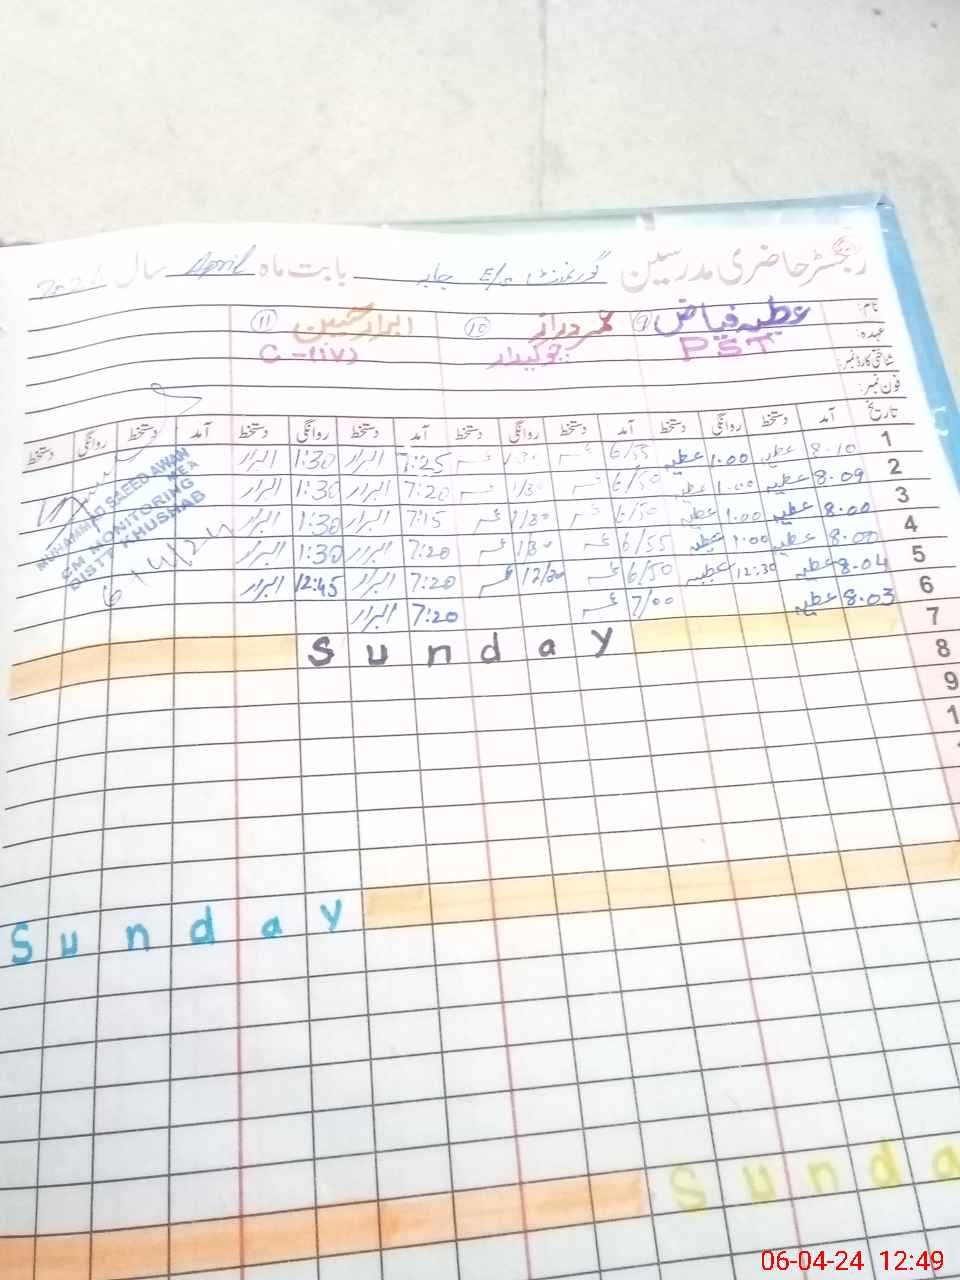 رجسٹر حاضری مدرسین گورنمنٹ E/S جابہ بابت ماہ April سال 2024
نام: عطیہ فیاض ⑨ عمر دراز ⑩ ابرار حسین ⑪
عہدہ: PST چوکیدار C-(iv)
شناختی کارڈ نمبر:
فون نمبر:
تاریخ آمد دستخط روانگی دستخط آمد دستخط روانگی دستخط آمد دستخط روانگی دستخط آمد دستخط روانگی دستخط
1 8.10 عطیہ 1.00 عطیہ 6/55 عمر 1/30 عمر 7:25 ابرار 1:30 ابرار
2 8.09 عطیہ 1.00 عطیہ 6/50 عمر 1/30 عمر 7:20 ابرار 1:30 ابرار
3 8.00 عطیہ 1.00 عطیہ 6/50 عمر 1/30 عمر 7:15 ابرار 1:30 ابرار
4 8.00 عطیہ 1.00 عطیہ 6/55 عمر 1/30 عمر 7:20 ابرار 1:30 ابرار
5 8.04 عطیہ 12:30 عطیہ 6/50 عمر 12/30 عمر 7:20 ابرار 12:45 ابرار
6 8.03 عطیہ 7/00 عمر 7:20 ابرار
7 Sunday
8
9
1
MUHAMMAD SAEED AWAN
MEA
CM MONITORING
DISTT KHUSHAB
6/4/24
Sunday
Sunda
06-04-24 12:49